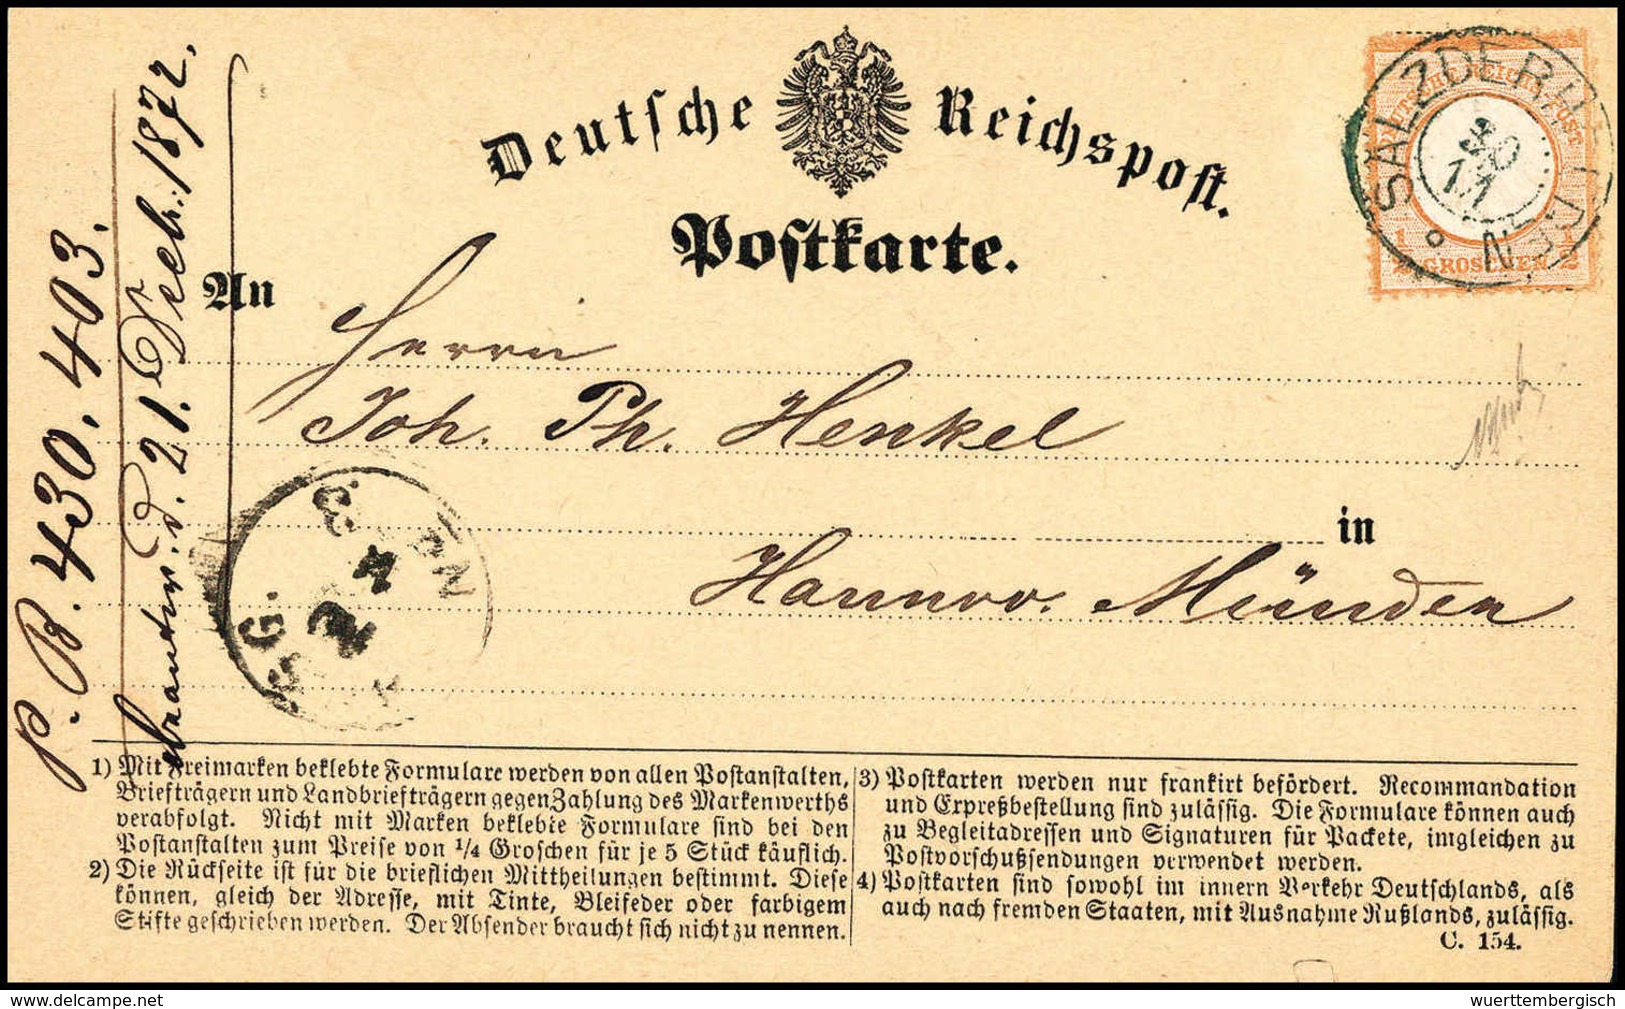 Deutsche Reichspost.
Postkarte.
SALZDERHELDEN
30
11
DEUTSCHE REICHS POST
1/2 GROSCHEN 1/2
An
Herrn
Joh. Ph. Henkel
in
Hannov. Münden
P. B. 430. 403.
d. 21. Decbr. 1872.
1) Mit Freimarken beklebte Formulare werden von allen Postanstalten,
Briefträgern und Landbriefträgern gegen Zahlung des Markenwerths
verabfolgt. Nicht mit Marken beklebte Formulare sind bei den
Postanstalten zum Preise von 1/4 Groschen für je 5 Stück käuflich.
2) Die Rückseite ist für die brieflichen Mittheilungen bestimmt. Diese
können, gleich der Adresse, mit Tinte, Bleifeder oder farbigem
Stifte geschrieben werden. Der Absender braucht sich nicht zu nennen.
3) Postkarten werden nur frankirt befördert. Recommandation
und Expreßbestellung sind zulässig. Die Formulare können auch
zu Begleitadressen und Signaturen für Packete, imgleichen zu
Postvorschußsendungen verwendet werden.
4) Postkarten sind sowohl im innern Verkehr Deutschlands, als
auch nach fremden Staaten, mit Ausnahme Rußlands, zulässig.
C. 154.
Web-Site delcampe.net
wuerttembergisch